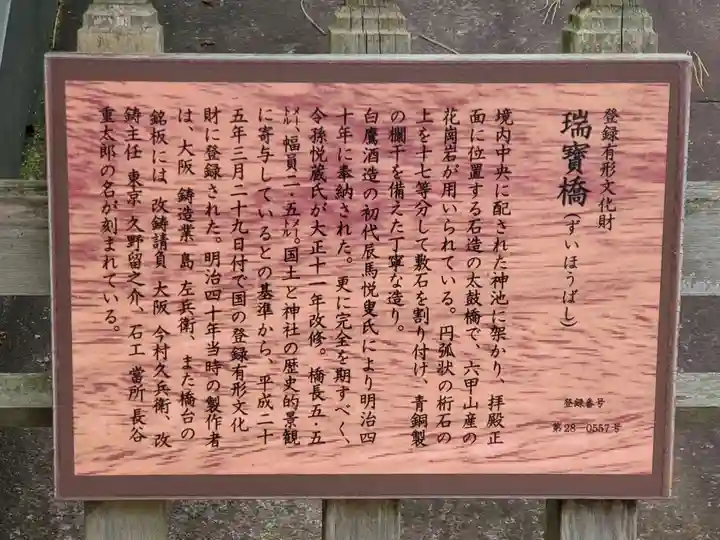 登録有形文化財
瑞寶橋(ずいほうばし)
登録番号
第28-0557号
境内中央に配された神池に架かり、拝殿正
面に位置する石造の太鼓橋で、六甲山産の
花崗岩が用いられている。円弧状の桁石の
上を十七等分して敷石を割り付け、青銅製
の欄干を備えた丁寧な造り。
白鷹酒造の初代辰馬悦叟氏により明治四
十年に奉納された。更に完全を期すべく、
令孫悦蔵氏が大正十一年改修。橋長五・五
㍍、幅員二・五㍍。国土と神社の歴史的景観
に寄与しているとの基準から、平成二十
五年三月二十九日付で国の登録有形文化
財に登録された。明治四十年当時の製作者
は、大阪 鋳造業 島 左兵衛、また橋台の
銘板には、改鋳請負 大阪 今村久兵衛、改
鋳主任 東京 久野留之介、石工 當所 長谷
重太郎の名が刻まれている。